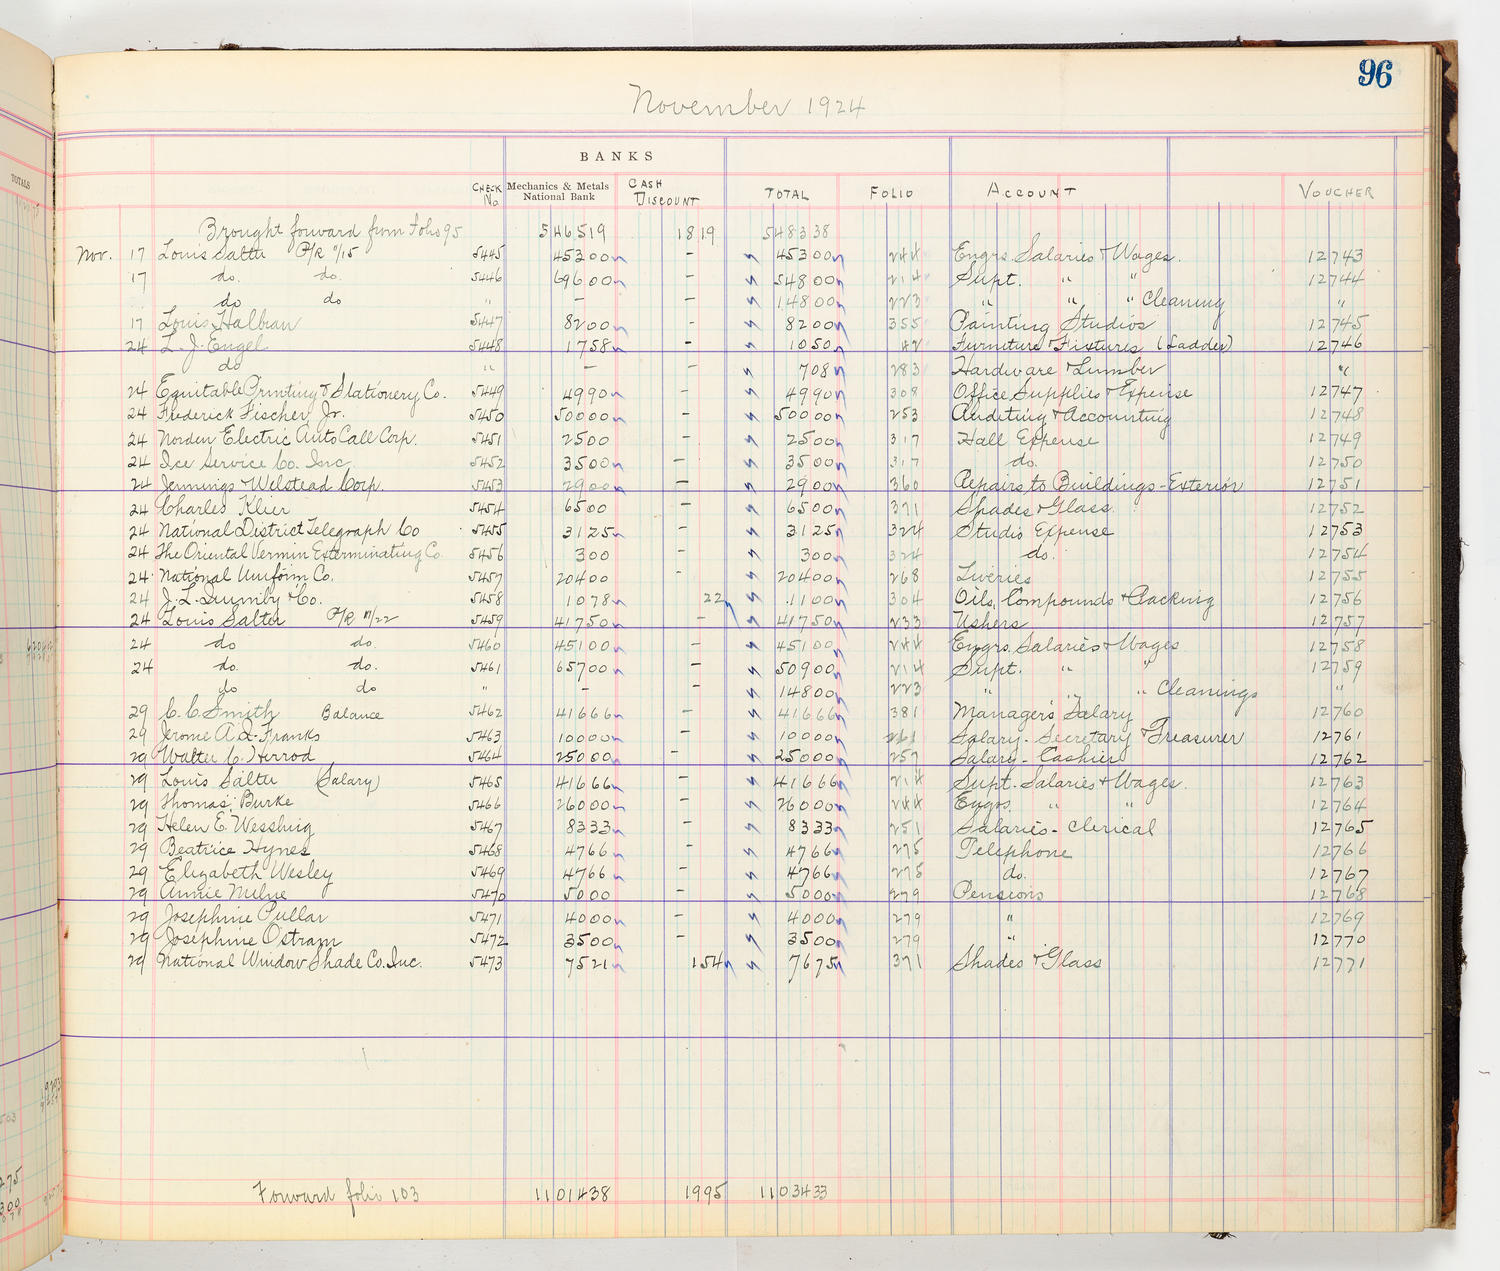 96
November 1924
TOTALS
BANKS
CHECK No. Mechanics & Metals National Bank CASH DISCOUNT TOTAL FOLIO ACCOUNT VOUCHER
Brought forward from Folio 95 546519 1819 548338
Nov. 17 Louis Salter P/R 11/15 5445 45300 - 45300 244 Engrs. Salaries & Wages. 12743
17 do. do. 5446 69600 - 54800 214 Supt. " " 12744
do do " - - 14800 223 " " " Cleaning "
17 Louis Halbran 5447 8200 - 8200 355 Painting Studios 12745
24 L. J. Engel 5448 1758 - 1050 42 Furniture & Fixtures (Ladder) 12746
do " - - 708 283 Hardware & Lumber "
24 Equitable Printing & Stationery Co. 5449 4990 - 4990 308 Office Supplies & Expense 12747
24 Frederick Fischer, Jr. 5450 50000 - 50000 253 Auditing & Accounting 12748
24 Norden Electric Auto Call Corp. 5451 2500 - 2500 317 Hall Expense 12749
24 Ice Service Co. Inc. 5452 3500 - 3500 317 do. 12750
24 Jennings & Welstead Corp. 5453 2900 - 2900 360 Repairs to Buildings-Exterior 12751
24 Charles Klier 5454 6500 - 6500 371 Shades & Glass. 12752
24 National District Telegraph Co 5455 3125 - 3125 324 Studio Expense 12753
24 The Oriental Vermin Exterminating Co. 5456 300 - 300 324 do. 12754
24 National Uniform Co. 5457 20400 - 20400 268 Liveries 12755
24 J. L. Quimby & Co. 5458 1078 22 1100 304 Oils, Compounds & Packing 12756
24 Louis Salter P/R 11/22 5459 41750 - 41750 233 Ushers 12757
24 do do. 5460 45100 - 45100 244 Engrs. Salaries & Wages 12758
24 do. do. 5461 65700 - 50900 214 Supt. " " 12759
do do " - - 14800 223 " " " Cleanings "
29 C. C. Smith Balance 5462 41666 - 41666 381 Manager's Salary 12760
29 Jerome A. Q. Franks 5463 10000 - 10000 Salary- Secretary & Treasurer 12761
29 Walter C. Herrod 5464 25000 - 25000 257 Salary- Cashier 12762
29 Louis Salter (Salary) 5465 41666 - 41666 214 Supt. Salaries & Wages. 12763
29 Thomas Burke 5466 26000 - 26000 244 Engrs. " " 12764
29 Helen E. Wesshig 5467 8333 - 8333 251 Salaries- Clerical 12765
29 Beatrice Hynes 5468 4766 - 4766 275 Telephone 12766
29 Elizabeth Wesley 5469 4766 - 4766 275 do. 12767
29 Annie Milne 5470 5000 - 5000 279 Pensions 12768
29 Josephine Pullar 5471 4000 - 4000 279 " 12769
29 Josephine Ostram 5472 3500 - 3500 279 " 12770
29 National Window Shade Co. Inc. 5473 7521 154 7675 371 Shades & Glass 12771
Forward folio 103 1101438 1995 1103433